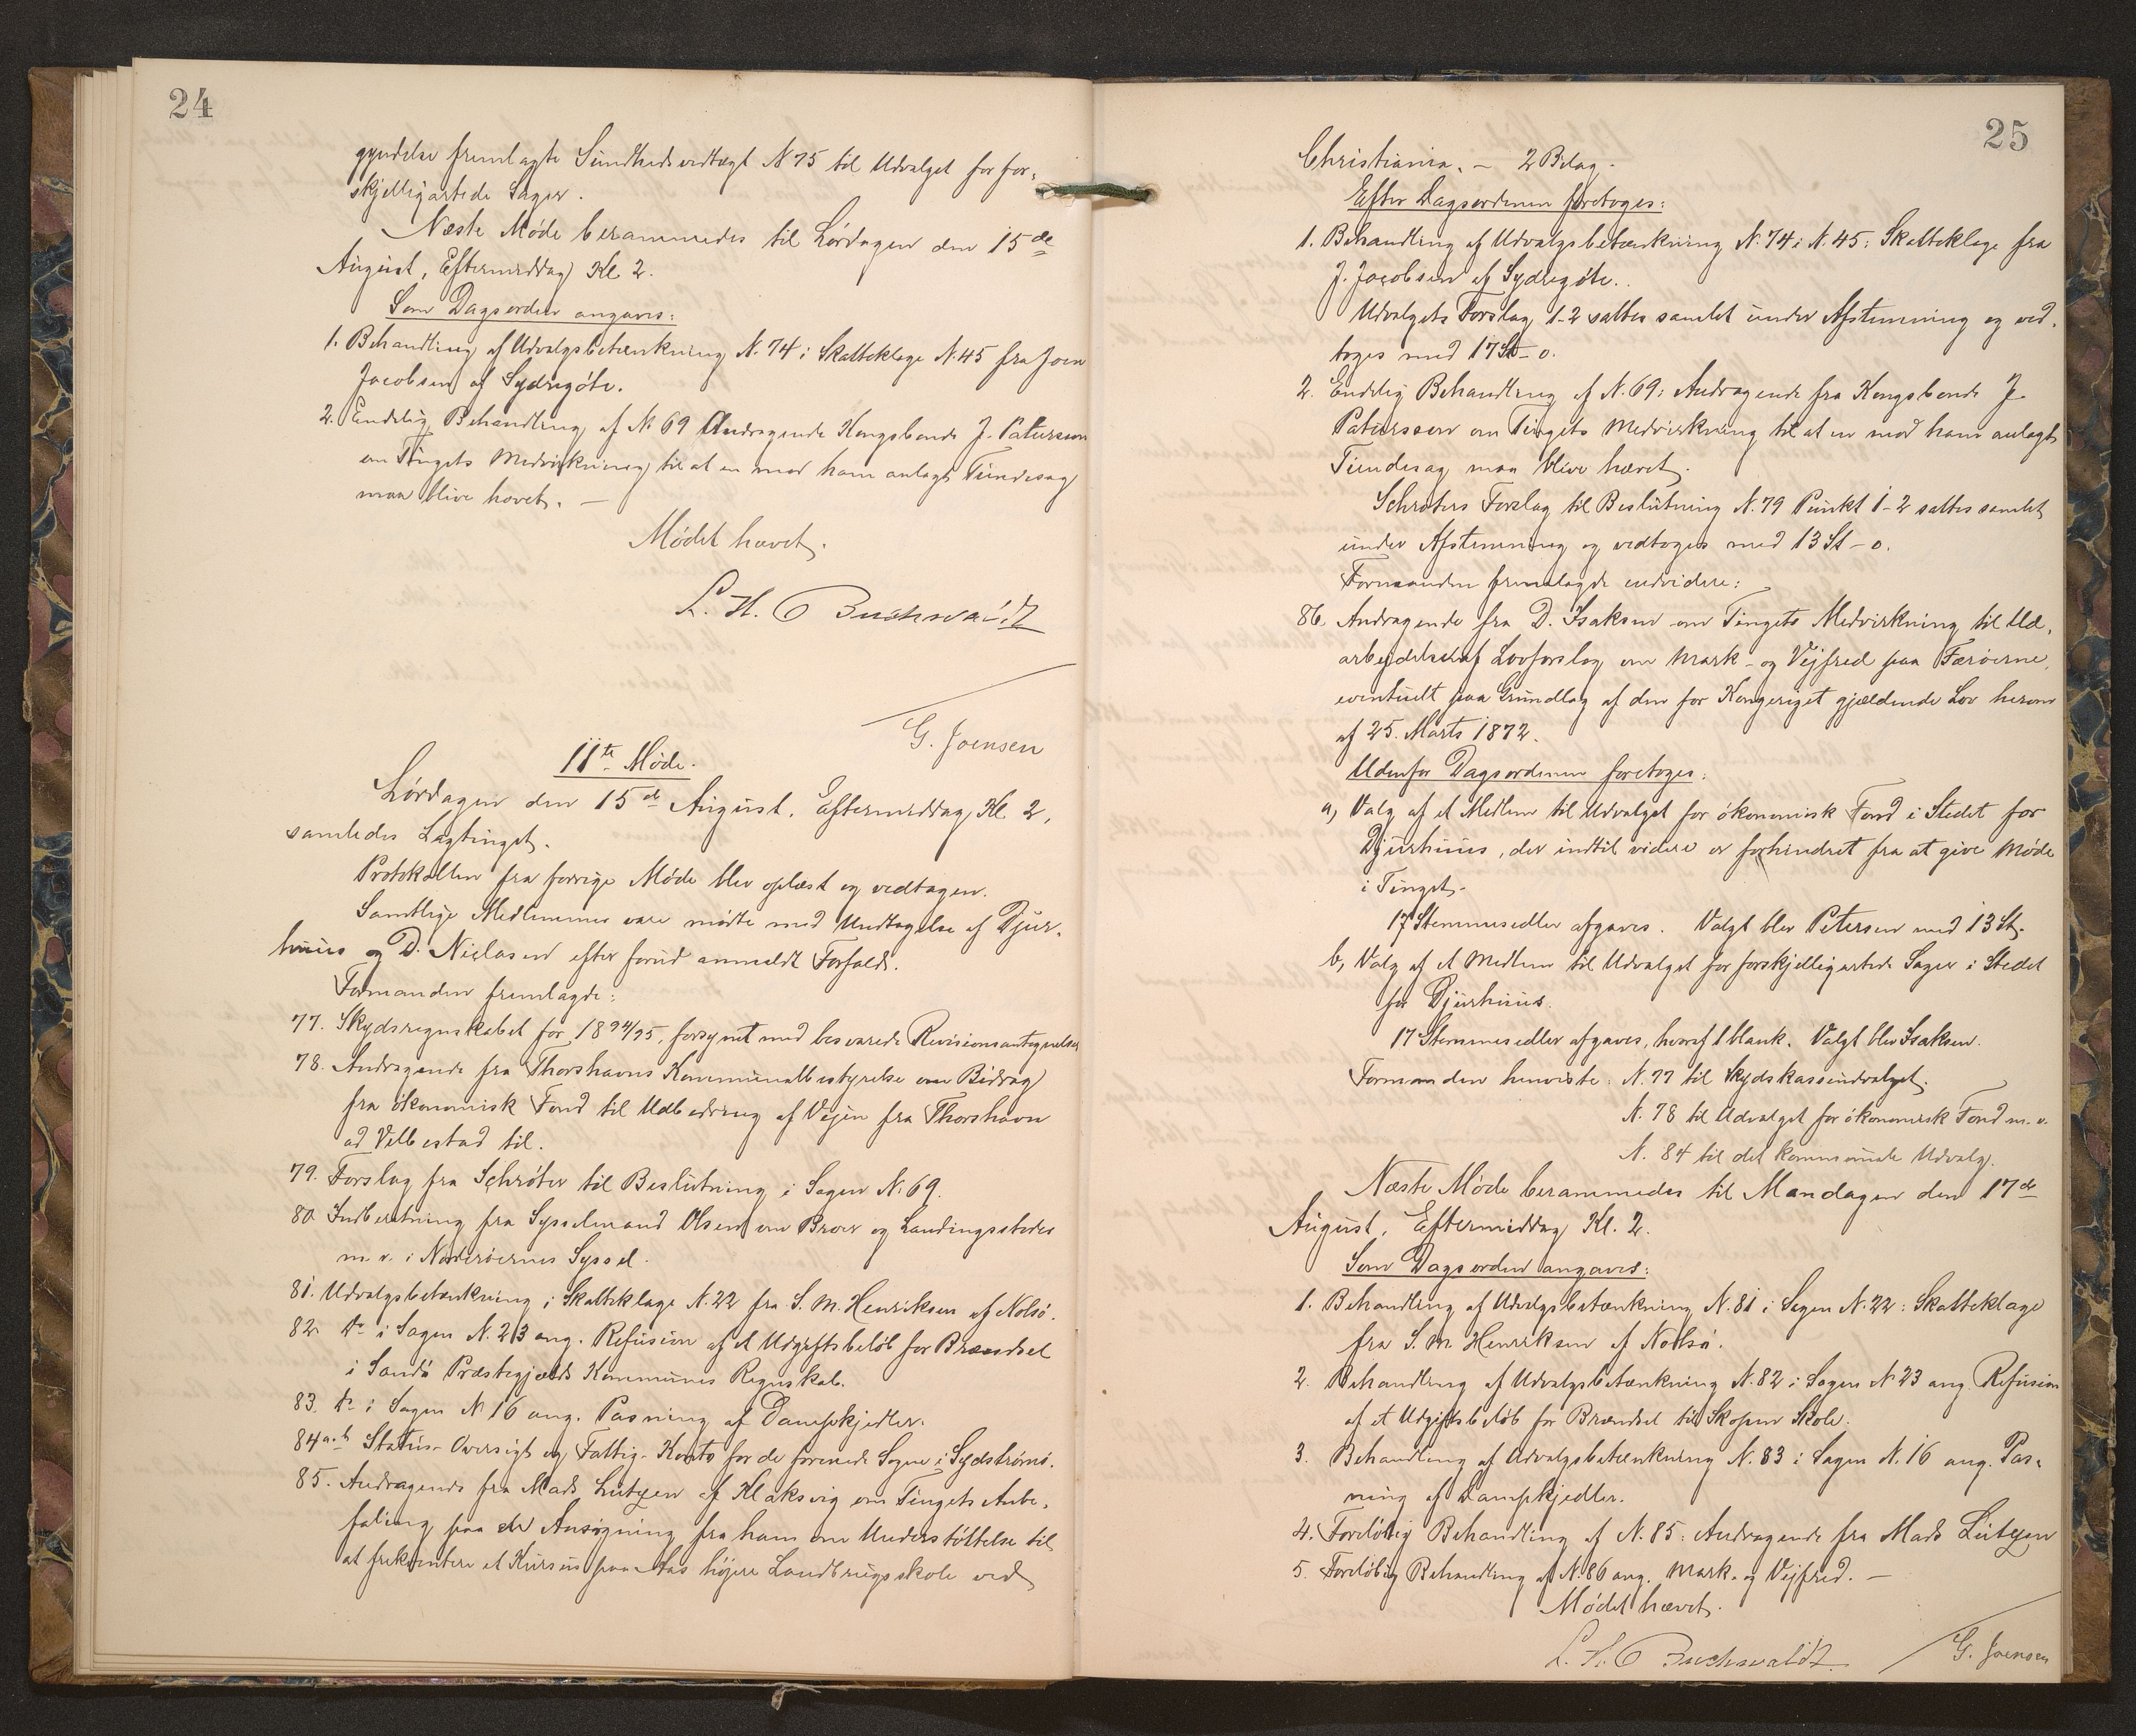 24
gyndelse fremlagte Sundhedsvedtægt N 75 til Udvalget for for-
skjelligartede Sager.
Næste Møde berammedes til Lørdagen den 15de
August, Eftermiddag Kl. 2.
Som Dagsorden angaves:
1. Behandling af Udvalgsbetænkning N. 74 i Skatteklage N. 45 fra Joen
Jacobsen af Sydregøte.
2. Endelig Behandling af N. 69 Andragende Kongsbonde J. Patursson
om Tingets Medvirkning til at en mod ham anlagt Tiendesag
maa blive hævet. —
Mødet hævet.
L. H. C Buchwaldt
G. Joensen
11te Møde.
Lørdagen den 15de August, Eftermiddag Kl. 2,
samledes Lagtinget.
Protokollen fra forrige Møde blev oplæst og vedtagen.
Samtlige Medlemmer vare mødte med Undtagelse af Djur-
huus og D. Niclasen efter forud anmeldt Forfald.
Formanden fremlagde:
77. Skydsregnskabet for 1894/95, forsynet med besvarede Revisionsantegnelser
78. Andragende fra Thorshavns Kommunalbestyrelse om Bidrag
fra økonomisk Fond til Udbedring af Vejen fra Thorshavn
ad Velbestad til.
79. Forslag fra Schrøter til Beslutning i Sagen N. 69.
80. Indberetning fra Sysselmand Olsen om Broer og Landingssteder
m. v. i Norderøernes Syssel.
81. Udvalgsbetænkning i Skatteklage N. 22 fra S. M. Henriksen af Nolsø.
82. do i Sagen N. 23 ang. Refusion af et Udgiftsbeløb for Brændsel
i Sandø Præstegjælds Kommunes Regnskab.
83. do i Sagen N 16 ang. Pasning af Dampkjedler.
84 a-b Status-Oversigt og Fattig-Konto for de forenede Sogne i Sydstrømø.
85. Andragende fra Mads Lützen af Klaksvig om Tingets Anbe-
faling paa en Ansøgning fra ham om Understøttelse til
at frekventere et Kursus paa Aas højere Landbrugsskole ved
25
Christiania. — 2 Bilag.
Efter Dagsordenen foretoges:
1. Behandling af Udvalgsbetænkning N. 74 i N. 45: Skatteklage fra
J. Jacobsen af Sydregøte.
Udvalgets Forslag 1-2 sattes samlet under Afstemning og ved-
toges med 17 St - 0.
2. Endelig Behandling af N. 69: Andragende fra Kongsbonde J.
Patursson om Tingets Medvirkning til at en mod ham anlagt
Tiendesag maa blive hævet.
Schrøters Forslag til Beslutning N. 79 Punkt 1-2 sattes samlet
under Afstemning og vedtoges med 13 St - 0.
Formanden fremlagde endvidere:
86. Andragende fra D. Isaksen om Tingets Medvirkning til Ud-
arbejdelse af Lovforslag om Mark- og Vejfred paa Færøerne,
eventuelt paa Grundlag af den for Kongeriget gjældende Lov herom
af 25. Marts 1872.
Udenfor Dagsordenen foretoges:
a, Valg af et Medlem til Udvalget for økonomisk Fond i Stedet for
Djurhuus, der indtil videre er forhindret fra at give Møde
i Tinget.
17 Stemmesedler afgaves. Valgt blev Petersen med 13 St.
b, Valg af et Medlem til Udvalget for forskjelligartede Sager i Stedet
for Djurhuus.
17 Stemmesedler afgaves, hvoraf 1 blank. Valgt blev Isaksen.
Formanden henviste: N. 77 til Skydskasseudvalget.
N. 78 til Udvalget for økonomisk Fond m. v.
N. 84 til det kommunale Udvalg.
Næste Møde berammedes til Mandagen den 17de
August, Eftermiddag Kl. 2.
Som Dagsorden angaves:
1. Behandling af Udvalgsbetænkning N. 81 i Sagen N. 22: Skatteklage
fra S. M. Henriksen af Nolsø.
2. Behandling af Udvalgsbetænkning N. 82 i Sagen N 23 ang. Refusion
af et Udgiftsbeløb for Brændsel til Skopen Skole.
3. Behandling af Udvalgsbetænkning N. 83 i Sagen N. 16 ang. Pas-
ning af Dampkjedler.
4. Foreløbig Behandling af N. 85: Andragende fra Mads Lützen
5. Foreløbig Behandling af N. 86 ang. Mark- og Vejfred. —
Mødet hævet.
L. H. C Buchwaldt.
G. Joensen